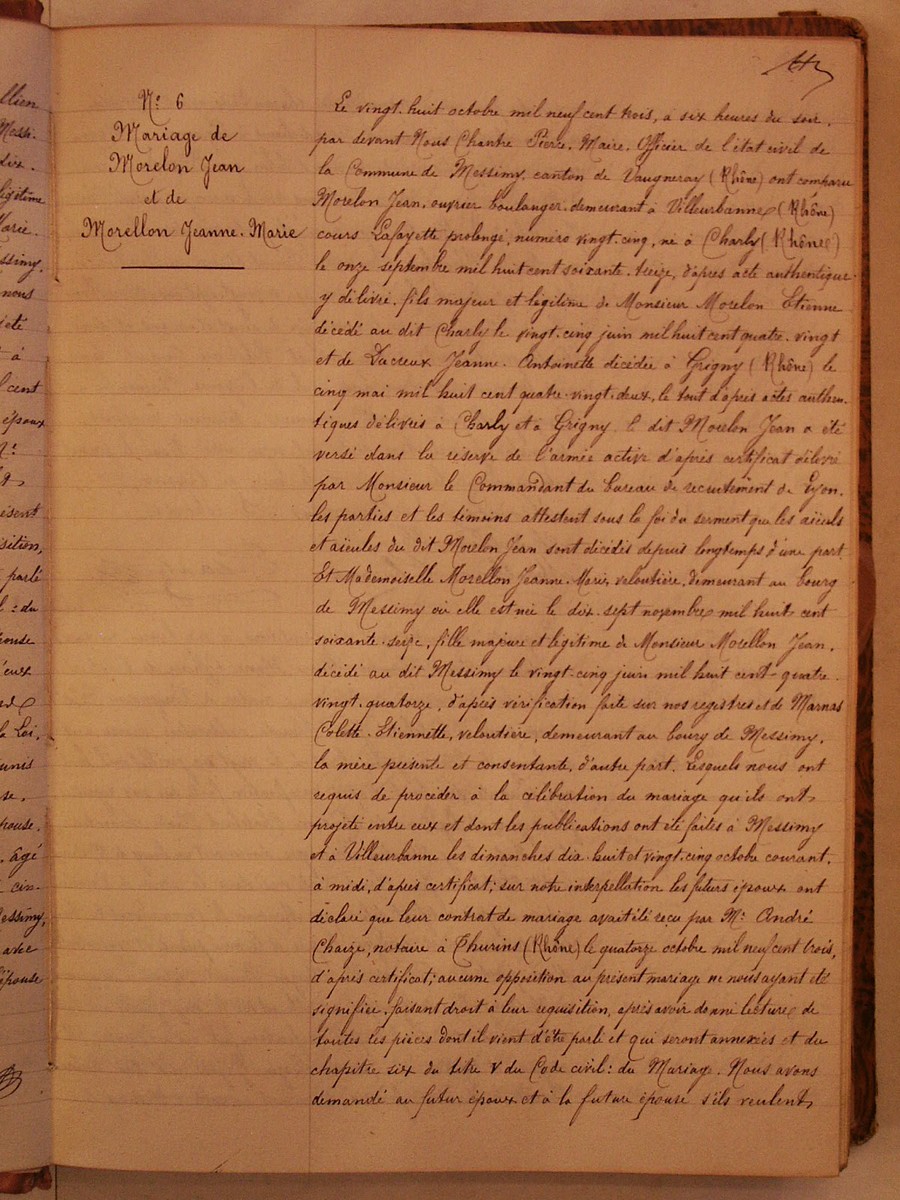 llien
Messi-
dix-
légitime
Marie-
ssimy.
nous
jeté
à
l cent
époux
Mr
ésent
sition,
parlé
l : du
pouse
eux
a Loi,
unis
se,
pouse.
, âgé
cin-
essimy,
avec
épouse
No 6
Mariage de
Morelon Jean
et de
Morellon Jeanne-Marie
Le vingt-huit octobre mil neuf cent trois, à six heures du soir,
par devant Nous Chantre Pierre, Maire, Officier de l'état civil de
la Commune de Messimy, canton de Vaugneray (Rhône) ont comparu
Morelon Jean, ouvrier boulanger, demeurant à Villeurbanne (Rhône)
cours Lafayette prolongé, numéro vingt-cinq, né à Charly (Rhône)
le onze septembre mil huit cent soixante-treize, d'après acte authentique
y délivré, fils majeur et légitime de Monsieur Morelon Etienne
décédé au dit Charly le vingt-cinq juin mil huit cent quatre-vingt
et de Ducreux Jeanne-Antoinette décédée à Grigny (Rhône) le
cinq mai mil huit cent quatre-vingt-deux, le tout d'après actes authen-
tiques délivrés à Charly et à Grigny, le dit Morelon Jean a été
versé dans la réserve de l'armée active d'après certificat délivré
par Monsieur le Commandant du bureau de recrutement de Lyon.
les parties et les témoins attestent sous la foi du serment que les aïeuls
et aïeules du dit Morelon Jean sont décédés depuis longtemps d'une part.
Et Mademoiselle Morellon Jeanne-Marie, veloutière, demeurant au bourg
de Messimy où elle est née le dix-sept novembre mil huit cent
soixante-seize, fille majeure et légitime de Monsieur Morellon Jean,
décédé au dit Messimy le vingt-cinq juin mil huit cent-quatre-
vingt-quatorze, d'après vérification faite sur nos registres et de Marnas
Colette-Etiennette, veloutière, demeurant au bourg de Messimy,
la mère présente et consentante, d'autre part. Lesquels nous ont
requis de procéder à la célébration du mariage qu'ils ont
projeté entre eux et dont les publications ont été faites à Messimy
et à Villeurbanne les dimanches dix-huit et vingt-cinq octobre courant,
à midi, d'après certificat; sur notre interpellation les futurs époux ont
déclaré que leur contrat de mariage avait été reçu par Me André
Chaize, notaire à Thurins (Rhône) le quatorze octobre mil neuf cent trois,
d'après certificat; aucune opposition au présent mariage ne nous ayant été
signifiée, faisant droit à leur requisition, après avoir donné lecture de
toutes les pièces dont il vient d'être parlé et qui seront annexées et du
chapitre six du titre V du Code civil: du Mariage. Nous avons
demandé au futur époux et à la future épouse s'ils veulent